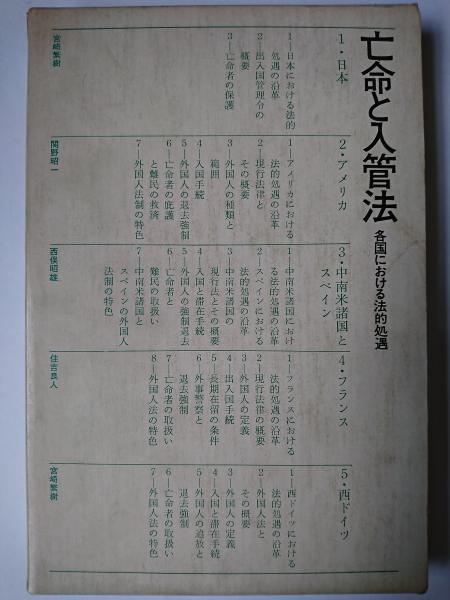 亡命と入管法
各国における法的処遇
1・日本
1―日本における法的
処遇の沿革
2―出入国管理令の
概要
3―亡命者の保護
宮崎繁樹
2・アメリカ
1―アメリカにおける
法的処遇の沿革
2―現行法律と
その概要
3―外国人の種類と
範囲
4―入国手続
5―外国人の退去強制
6―亡命者の庇護
と難民の救済
7―外国人法制の特色
関野昭一
3・中南米諸国と
スペイン
1―中南米諸国におけ
る法的処遇の沿革
2―スペインにおける
法的処遇の沿革
3―中南米諸国の
現行法とその概要
4―入国と滞在手続
5―外国人の強制退去
6―亡命者と
難民の取扱い
7―中南米諸国と
スペインの外国人
法制の特色
西俣昭雄
4・フランス
1―フランスにおける
法的処遇の沿革
2―現行法律の概要
3―外国人の定義
4―出入国手続
5―長期在留の条件
6―外事警察と
退去強制
7―亡命者の取扱い
8―外国人法の特色
住吉良人
5・西ドイツ
1―西ドイツにおける
法的処遇の沿革
2―外国人法と
その概要
3―外国人の定義
4―入国と滞在手続
5―外国人の追放と
退去強制
6―亡命者の取扱い
7―外国人法の特色
宮崎繁樹